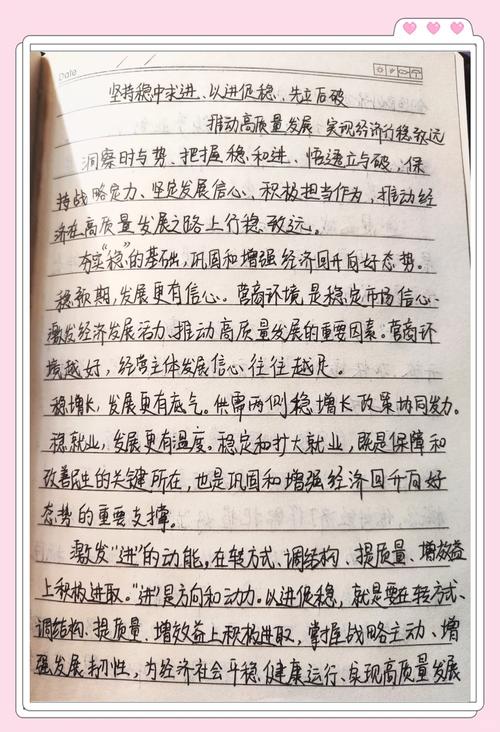 Date
坚持稳中求进、以进促稳、先立后破
推动高质量发展 实现经济行稳致远
洞察时与势、把握稳和进、悟透立与破，保
持战略定力、坚定发展信心，积极担当作为，推动经
济在高质量发展之路上行稳致远。
夯实“稳”的基础，巩固和增强经济回升向好态势。
稳预期，发展更有信心。营商环境是稳定市场信心、
激发经济发展活力、推动高质量发展的重要因素。营商环
境越好，经营主体发展信心往往越足。
稳增长，发展更有底气。供需两侧稳增长政策协同发力。
稳就业，发展更有温度。稳定和扩大就业，既是保障和
改善民生的关键所在，也是巩固和增强经济回升向好
态势的重要支撑。
激发“进”的动能，在转方式、调结构、提质量、增效益
上积极进取。“进”是方向和动力。以进促稳，就是要在转方式、
调结构、提质量、增效益上积极进取，掌握战略主动、增
强发展韧性，为经济社会平稳健康运行、实现高质量发展